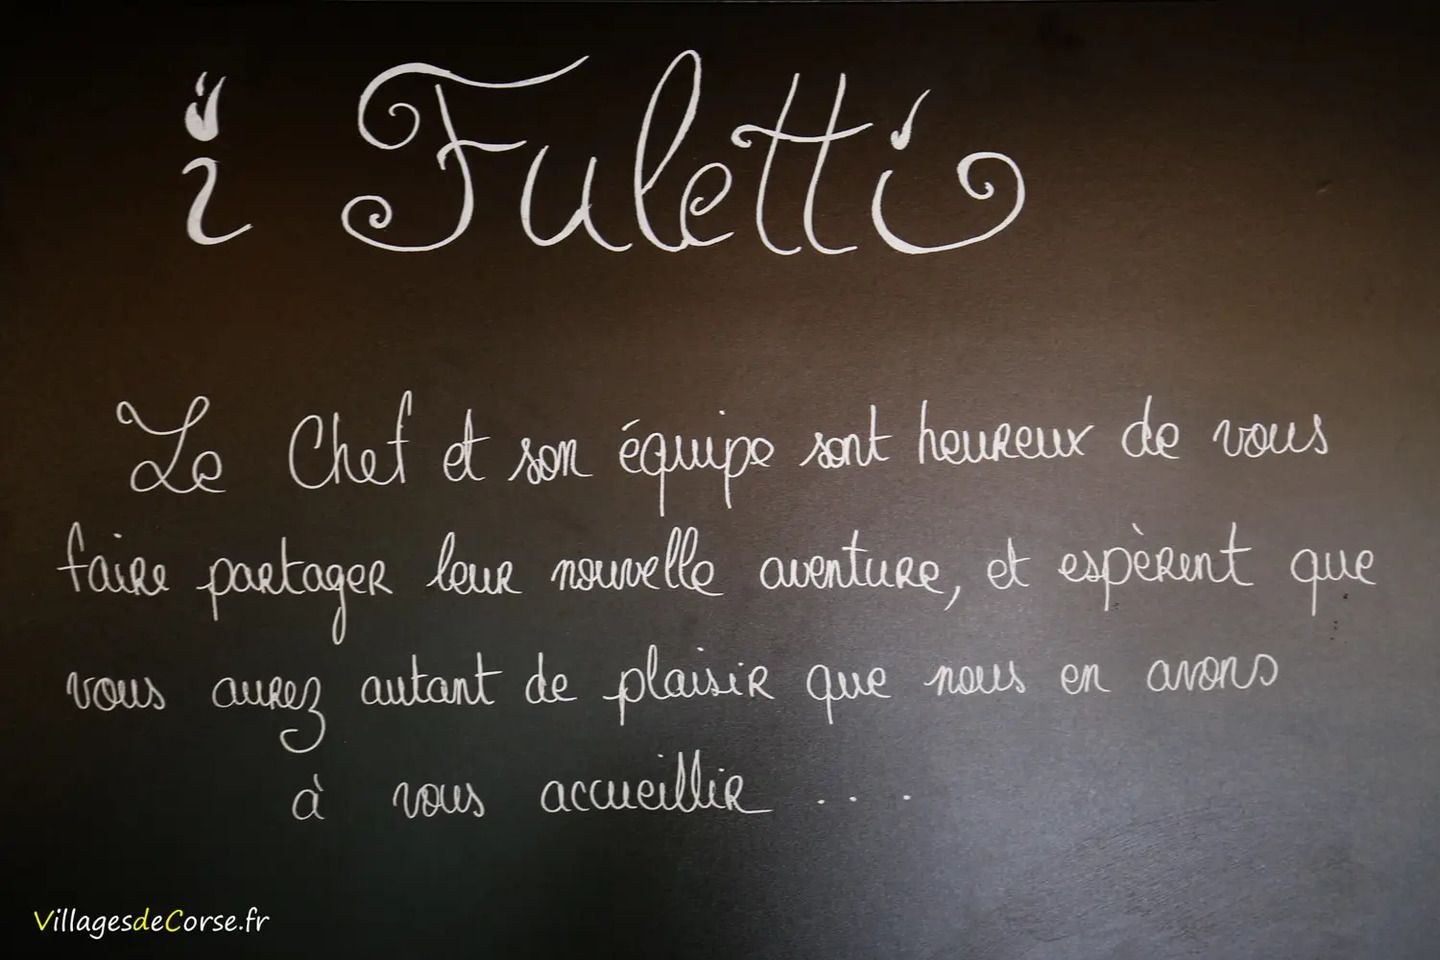 i Fuletti
Le Chef et son équipe sont heureux de vous
faire partager leur nouvelle aventure, et espèrent que
vous aurez autant de plaisir que nous en avons
à vous accueillir ...
VillagesdeCorse.fr